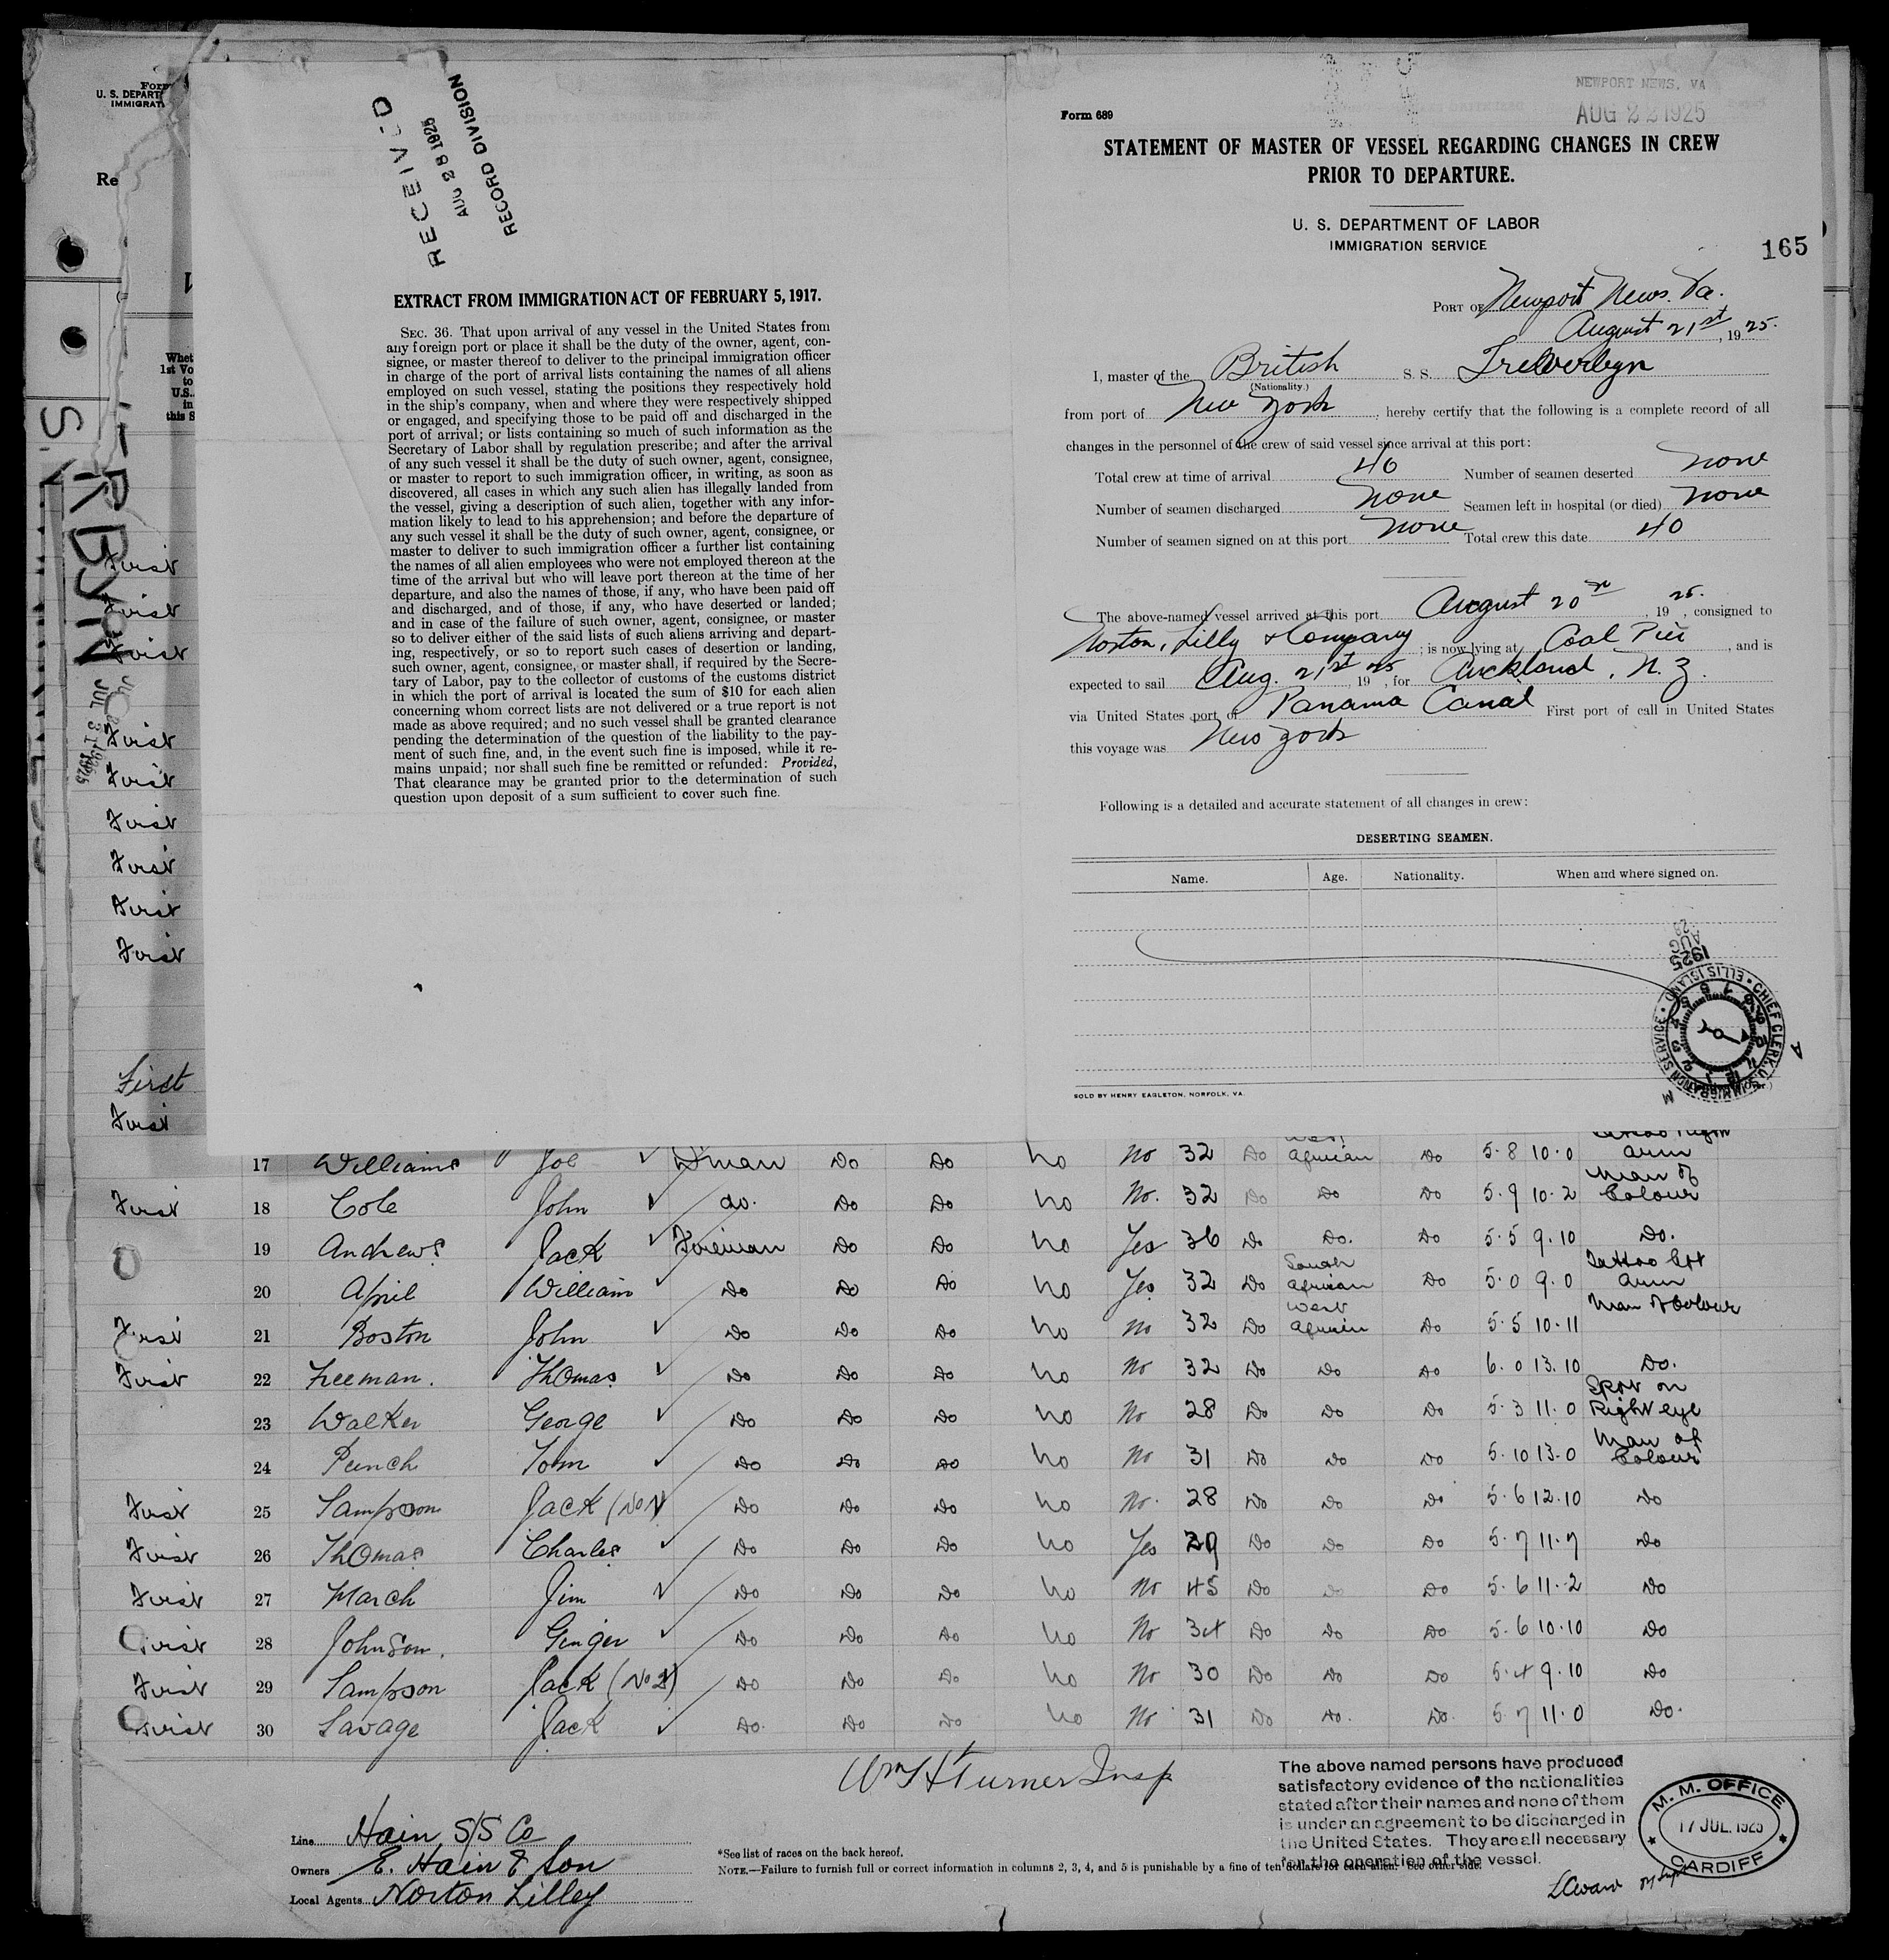 Form
U. S. DEPART
IMMIGRAT
Re
Whet
1st Vo
to
U.S.
in
this S
RECEIVED
AUG 28 1925
RECORD DIVISION
EXTRACT FROM IMMIGRATION ACT OF FEBRUARY 5, 1917.
SEC. 36. That upon arrival of any vessel in the United States from
any foreign port or place it shall be the duty of the owner, agent, con-
signee, or master thereof to deliver to the principal immigration officer
in charge of the port of arrival lists containing the names of all aliens
employed on such vessel, stating the positions they respectively hold
in the ship's company, when and where they were respectively shipped
or engaged, and specifying those to be paid off and discharged in the
port of arrival; or lists containing so much of such information as the
Secretary of Labor shall by regulation prescribe; and after the arrival
of any such vessel it shall be the duty of such owner, agent, consignee,
or master to report to such immigration officer, in writing, as soon as
discovered, all cases in which any such alien has illegally landed from
the vessel, giving a description of such alien, together with any infor-
mation likely to lead to his apprehension; and before the departure of
any such vessel it shall be the duty of such owner, agent, consignee, or
master to deliver to such immigration officer a further list containing
the names of all alien employees who were not employed thereon at the
time of the arrival but who will leave port thereon at the time of her
departure, and also the names of those, if any, who have been paid off
and discharged, and of those, if any, who have deserted or landed;
and in case of the failure of such owner, agent, consignee, or master
so to deliver either of the said lists of such aliens arriving and depart-
ing, respectively, or so to report such cases of desertion or landing,
such owner, agent, consignee, or master shall, if required by the Secre-
tary of Labor, pay to the collector of customs of the customs district
in which the port of arrival is located the sum of $10 for each alien
concerning whom correct lists are not delivered or a true report is not
made as above required; and no such vessel shall be granted clearance
pending the determination of the question of the liability to the pay-
ment of such fine, and, in the event such fine is imposed, while it re-
mains unpaid; nor shall such fine be remitted or refunded: Provided,
That clearance may be granted prior to the determination of such
question upon deposit of a sum sufficient to cover such fine.
NEWPORT NEWS, VA
AUG 22 1925
Form 689
STATEMENT OF MASTER OF VESSEL REGARDING CHANGES IN CREW
PRIOR TO DEPARTURE.
U. S. DEPARTMENT OF LABOR
IMMIGRATION SERVICE
165
PORT OF Newport News. Va.
August 21st, 1925.
I, master of the British S. S. Trelverbyn
(Nationality.)
from port of New York, hereby certify that the following is a complete record of all
changes in the personnel of the crew of said vessel since arrival at this port:
Total crew at time of arrival 40 Number of seamen deserted none
Number of seamen discharged none Seamen left in hospital (or died) none
Number of seamen signed on at this port none Total crew this date 40
The above-named vessel arrived at this port August 20th, 1925., consigned to
Norton, Lilly & Company; is now lying at Coal Pier, and is
expected to sail Aug. 21st, 1925, for Auckland, N.Z.
via United States port of Panama Canal First port of call in United States
this voyage was New York
Following is a detailed and accurate statement of all changes in crew:
DESERTING SEAMEN.
Name. Age. Nationality. When and where signed on.
SOLD BY HENRY EAGLETON, NORFOLK, VA.
1925
AUG
28
CHIEF CLERK, U.S. IMMIGRATION SERVICE • ELLIS ISLAND
JUL 31 1925
First
First
First
First
First
First
First
First
First
First
First
17 Williams Joe Dman Do Do no No 32 Do West African Do 5.8 10.0 tattoo right arm
First 18 Cole John do. Do Do no No. 32 Do Do Do 5.9 10.2 Man of Colour
19 Andrews Jack Fireman Do Do no Yes 36 Do Do. Do 5.5 9.10 Do.
20 April William Do Do Do no Yes 32 Do South African Do 5.0 9.0 Tattoo left arm
First 21 Boston John Do Do Do no No 32 Do West African Do 5.5 10.11 Man of Colour
First 22 Freeman. Thomas Do Do Do no No 32 Do Do Do 6.0 13.10 Do.
23 Walker George Do Do Do no No 28 Do Do Do 5.3 11.0 Spot on Right eye
24 Punch Tom Do Do Do no No 31 Do Do Do 5.10 13.0 Man of Colour
First 25 Sampson Jack (No 1) Do Do Do no No. 28 Do Do Do 5.6 12.10 Do
First 26 Thomas Charles Do Do Do no Yes 29 Do Do Do 5.7 11.7 Do
First 27 March Jim Do Do Do no No 45 Do Do Do 5.6 11.2 Do
First 28 Johnson. Ginger Do Do Do no No 34 Do Do Do 5.6 10.10 Do
First 29 Sampson Jack (No 2) Do Do Do no No 30 Do Do Do 5.4 9.10 Do
First 30 Savage Jack Do. Do Do no No 31 Do Do. Do. 5.7 11.0 Do.
Wm H Turner Insp
Line Hain S/S Co
Owners E. Hain & Son
Local Agents Norton Lilley
*See list of races on the back hereof.
NOTE.—Failure to furnish full or correct information in columns 2, 3, 4, and 5 is punishable by a fine of ten dollars for each alien. See other side.
The above named persons have produced
satisfactory evidence of the nationalities
stated after their names and none of them
is under an agreement to be discharged in
the United States. They are all necessary
for the operation of the vessel.
M. M. OFFICE
17 JUL. 1925
CARDIFF